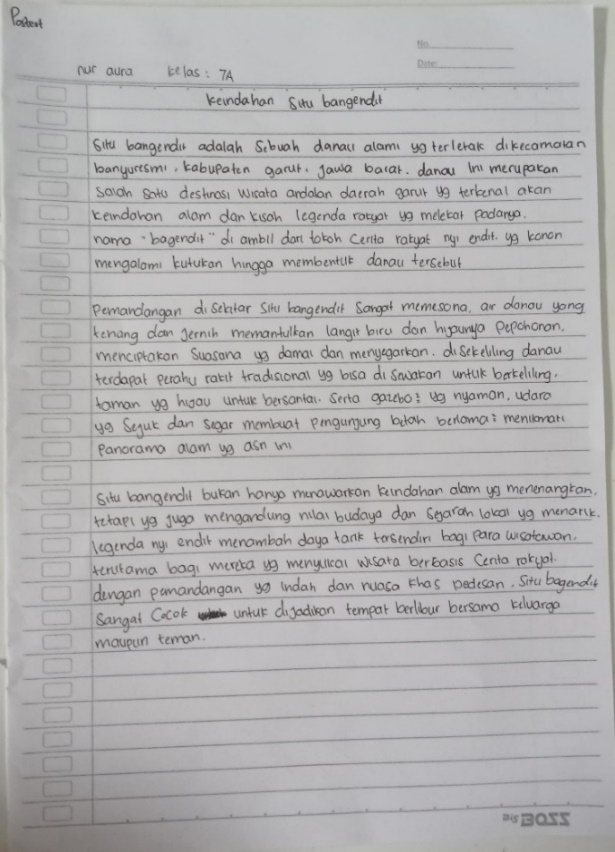 Postest
No.
Date:
nur aura kelas : 7A
keindahan Situ bangendit
Situ bangendit adalah Sebuah danau alami yg terletak dikecamatan
banyuresmi, kabupaten garut, Jawa barat. danau Ini merupakan
Salah Satu destinasi Wisata andalan daerah garut yg terkenal akan
keindahan alam dan kisah legenda rakyat yg melekat padanya.
nama "bagendit" di ambil dari tokoh Cerita rakyat nyi endit. yg konon
mengalami kutukan hingga membentuk danau tersebut
Pemandangan di Sekitar Situ bangendit Sangat memesona, air danau yang
tenang dan Jernih memantulkan langit biru dan hijaunya Pepohonan,
menciptakan Suasana yg damai dan menyegarkan. di Sekeliling danau
terdapat perahu rakit tradisional yg bisa di Sewakan untuk berkeliling,
taman yg hijau untuk bersantai. Serta gazebo² yg nyaman, udara
yg Sejuk dan Segar membuat Pengunjung betah berlama² menikmati
Panorama alam yg asri ini
Situ bangendit bukan hanya menawarkan keindahan alam yg menenangkan,
tetapi yg Juga mengandung nilai budaya dan Sejarah lokal yg menarik.
legenda nyi endit menambah daya tarik tersendiri bagi Para wisatawan,
terutama bagi mereka yg menyukai wisata berbasis Cerita rakyat.
dengan pemandangan yg indah dan nuasa khas pedesan, Situ bagendit
Sangat Cocok untuk dijadikan tempat berlibur bersama keluarga
maupun teman.
Big BOSS